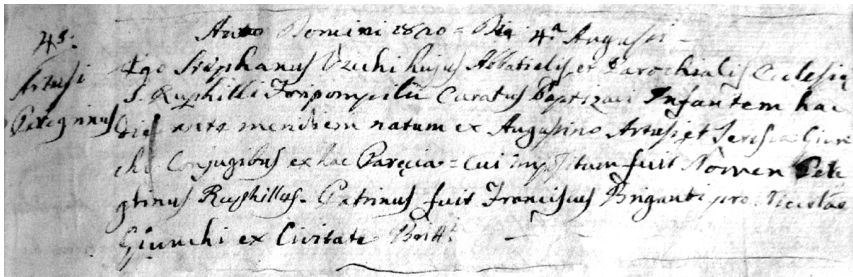 Anno Domini 1820 = Die 4ª Augusti -
48.
Artusi
Peregrinus
Ego Stephanus Zuchi hujus Abbatialis et Parochialis Ecclesiæ
S. Ruphilli Foripompilii Curatus Baptizavi Infantem hac
die ante meridiem natum ex Augustino Artusi, et Teresia Giun
chi Conjugibus ex hac Parecia = cui impositum fuit Nomen Pere
grinus Ruphillus. Patrinus fuit Franciscus Briganti pro Nicolao
Giunchi ex Civitate Britt.